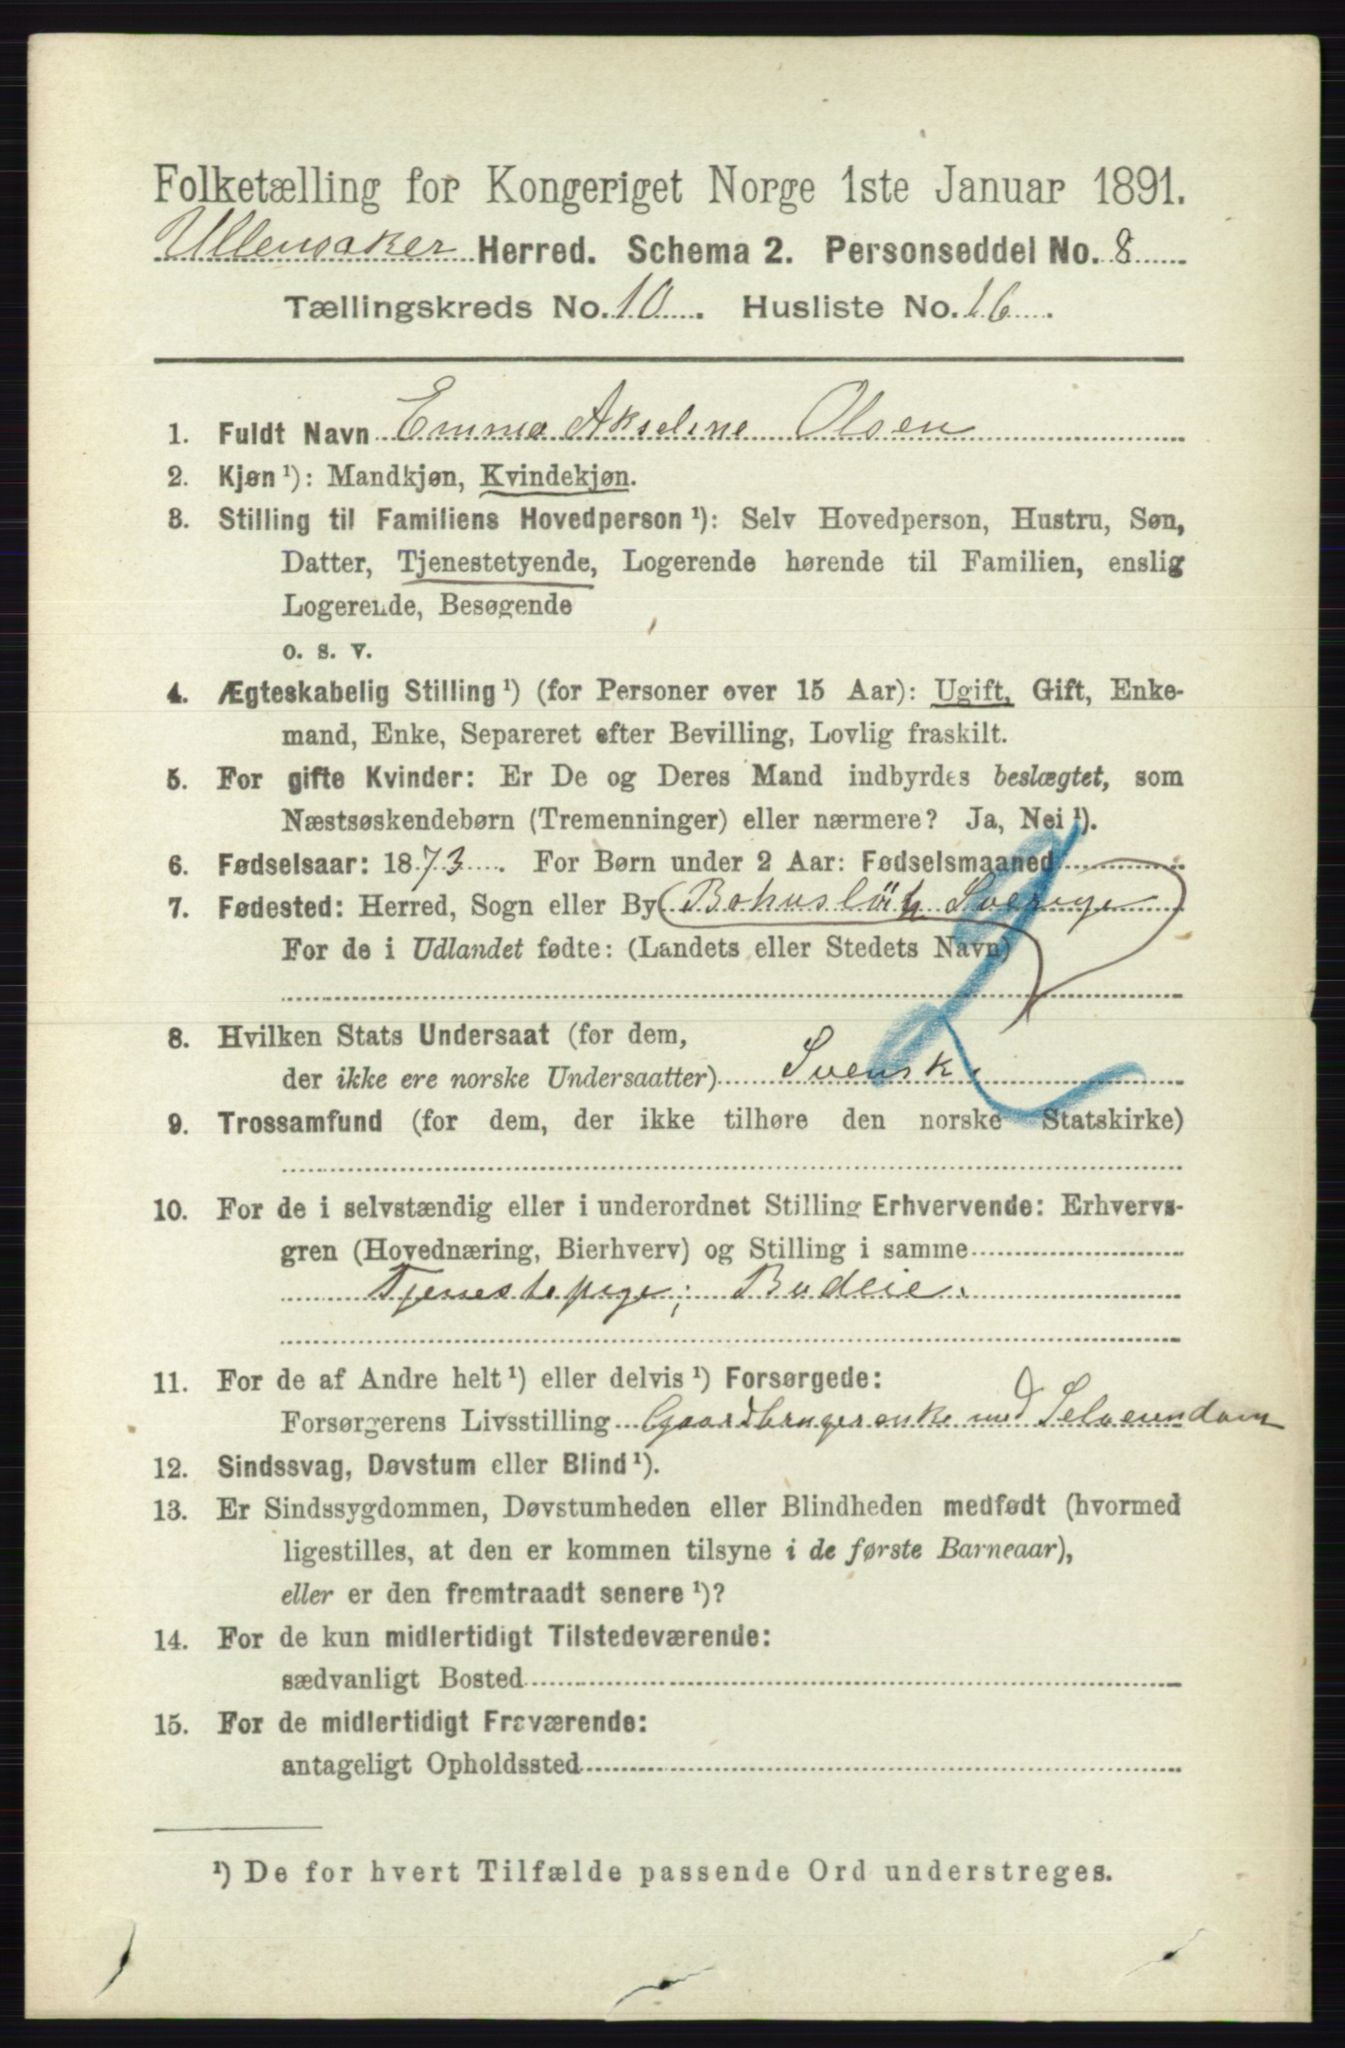 Folketælling for Kongeriget Norge 1ste Januar 1891.
Ullensaker Herred. Schema 2. Personseddel No. 8
Tællingskreds No. 10. Husliste No. 16.
1. Fuldt Navn Emma Akseline Olsen
2. Kjøn ¹): Mandkjøn, Kvindekjøn.
3. Stilling til Familiens Hovedperson ¹): Selv Hovedperson, Hustru, Søn,
Datter, Tjenestetyende, Logerende hørende til Familien, enslig
Logerende, Besøgende
o. s. v.
4. Ægteskabelig Stilling ¹) (for Personer over 15 Aar): Ugift, Gift, Enke-
mand, Enke, Separeret efter Bevilling, Lovlig fraskilt.
5. For gifte Kvinder: Er De og Deres Mand indbyrdes beslægtet, som
Næstsøskendebørn (Tremenninger) eller nærmere? Ja, Nei ¹).
6. Fødselsaar: 1873. For Børn under 2 Aar: Fødselsmaaned
7. Fødested: Herred, Sogn eller By Bohuslän Sverige
For de i Udlandet fødte: (Landets eller Stedets Navn)
8. Hvilken Stats Undersaat (for dem,
der ikke ere norske Undersaatter) Svensk.
9. Trossamfund (for dem, der ikke tilhøre den norske Statskirke)
10. For de i selvstændig eller i underordnet Stilling Erhvervende: Erhvervs-
gren (Hovednæring, Bierhverv) og Stilling i samme
Tjenestepige; Budeie.
11. For de af Andre helt ¹) eller delvis ¹) Forsørgede:
Forsørgerens Livsstilling Gaardbrugerenke med Selveiendom
12. Sindssvag, Døvstum eller Blind ¹).
13. Er Sindssygdommen, Døvstumheden eller Blindheden medfødt (hvormed
ligestilles, at den er kommen tilsyne i de første Barneaar),
eller er den fremtraadt senere ¹)?
14. For de kun midlertidigt Tilstedeværende:
sædvanligt Bosted
15. For de midlertidigt Fraværende:
antageligt Opholdssted
¹) De for hvert Tilfælde passende Ord understreges.